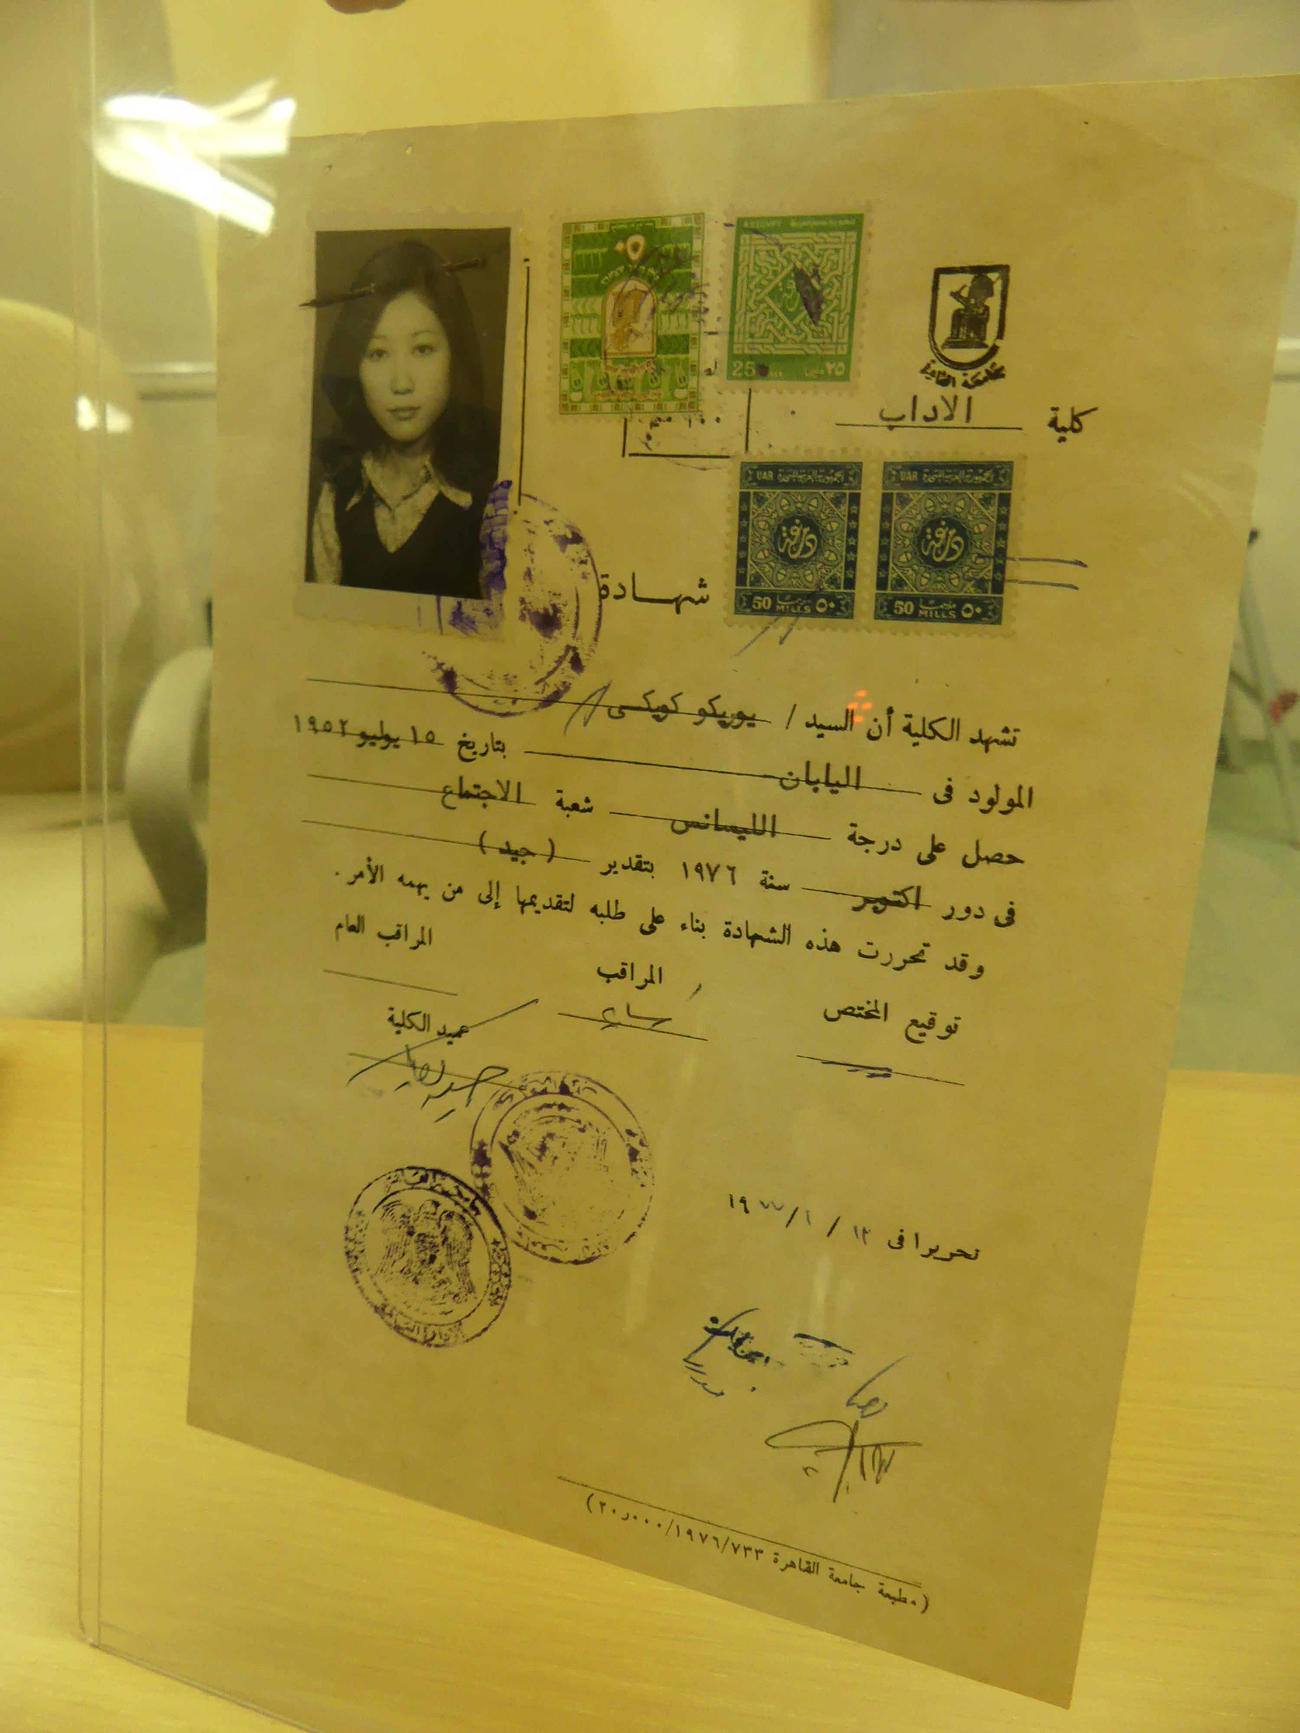 جامعة القاهرة
كلية الاداب
EGYPT
25 ٢٥
UAR
UAR
50 MILLS ٥٠
50 MILLS ٥٠
شهادة
تشهد الكلية أن السيد / يوريكو كويكى
المولود فى اليابان بتاريخ ١٥ يوليو ١٩٥٢
حصل على درجة الليسانس شعبة الاجتماع
فى دور اكتوبر سنة ١٩٧٦ بتقدير ( جيد )
وقد تحررت هذه الشهادة بناء على طلبه لتقديمها إلى من يهمه الأمر .
توقيع المختص المراقب المراقب العام
عميد الكلية
تحريرا فى ١٢ / ١ / ١٩٧٧
( مطبعة جامعة القاهرة ١٩٧٦/٧٣٣/٢٠٫٠٠٠ )